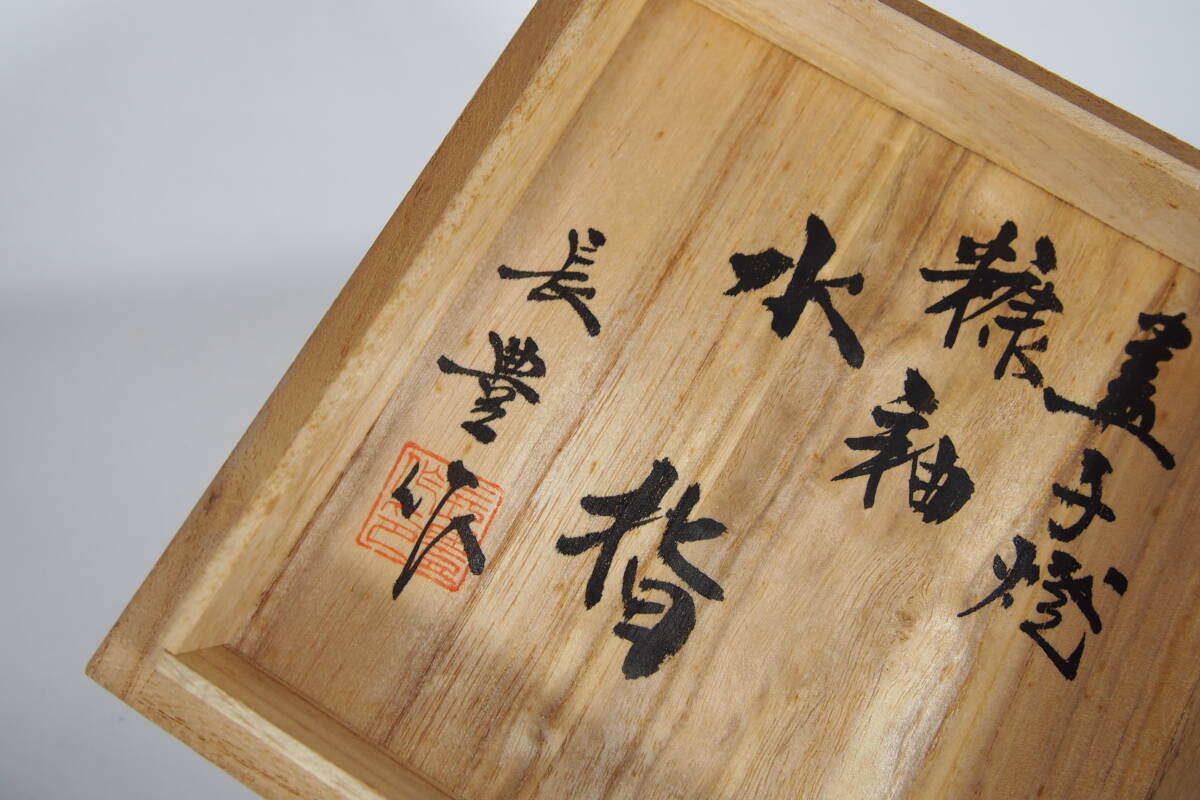 益子焼
糠釉
水指
長豊作